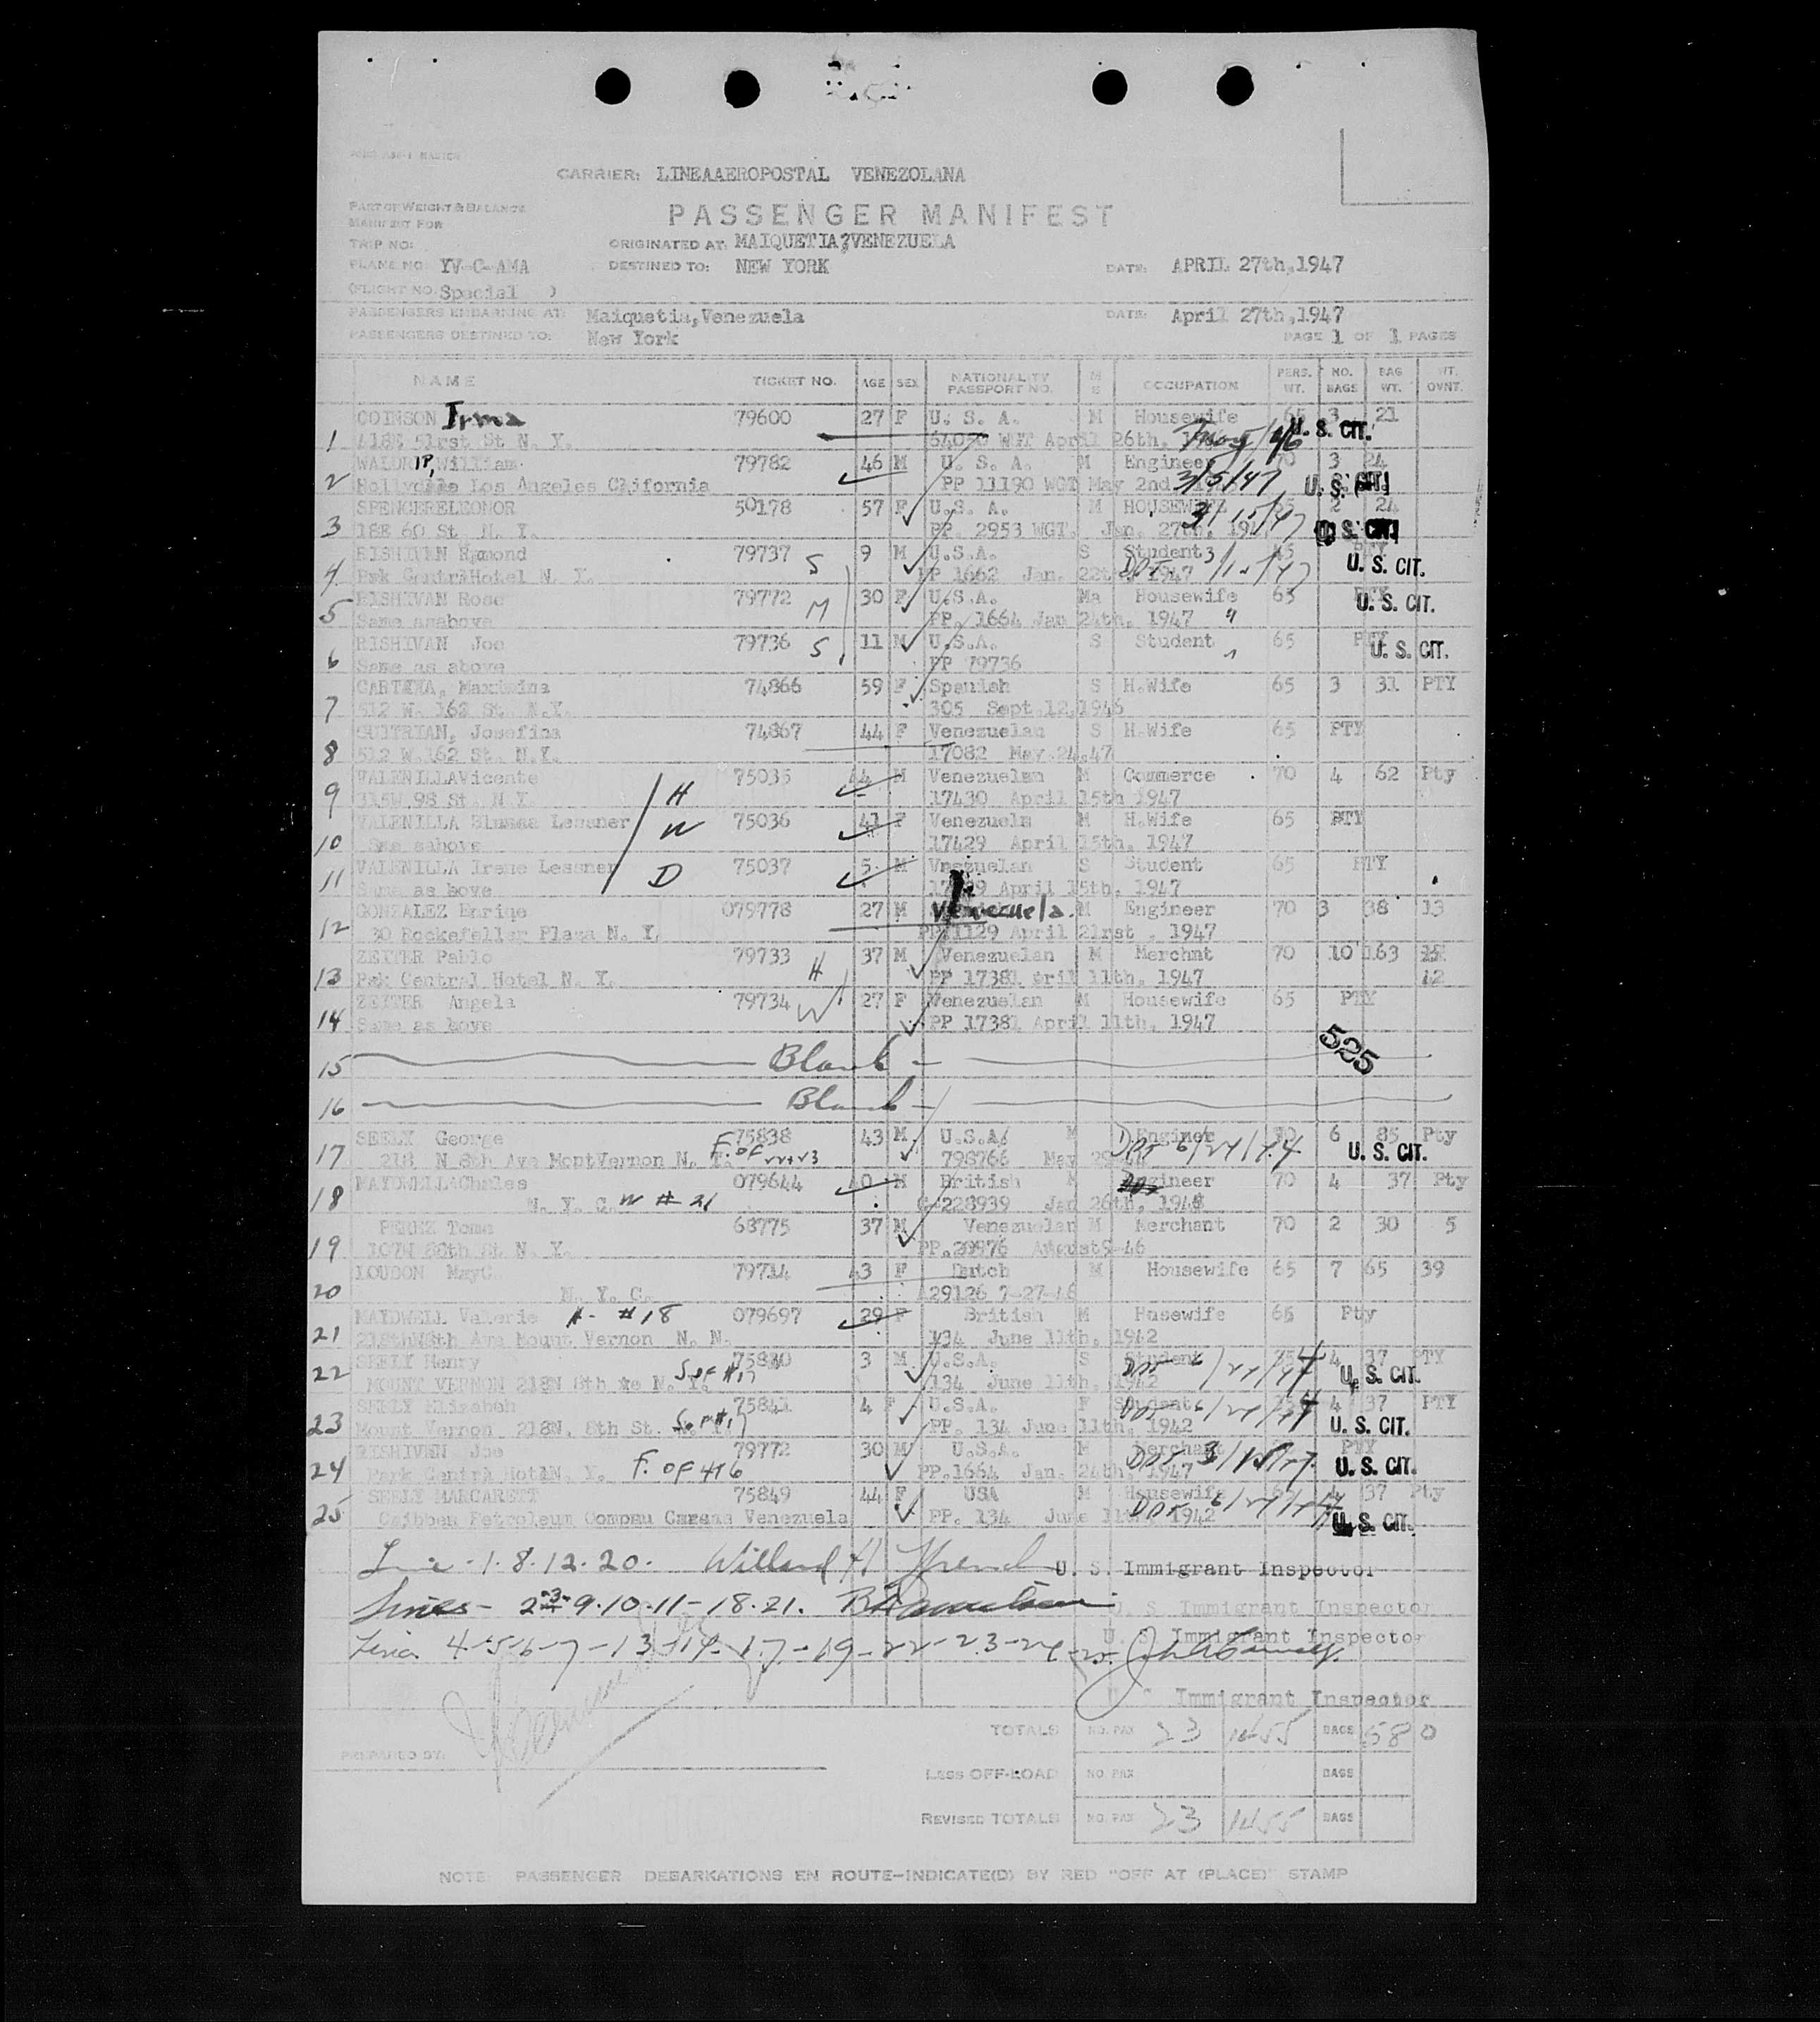 CARRIER: LINEAAEROPOSTAL VENEZOLANA
PART OF WEIGHT & BALANCE
MANIFEST FOR
PASSENGER MANIFEST
TRIP NO:
ORIGINATED AT: MAIQUETIA,VENEZUELA
PLANE NO: YV-C-AMA DESTINED TO: NEW YORK DATE: APRIL 27th,1947
(FLIGHT NO. Special )
PASSENGERS EMBARKING AT: Maiquetia,Venezuela DATE: April 27th,1947
PASSENGERS DESTINED TO: New York PAGE 1 OF 1 PAGES
NAME TICKET NO. AGE SEX NATIONALITY PASSPORT NO. M S OCCUPATION PERS. WT. NO. BAGS BAG WT. WT. OVNT.
COINSON Irma 79600 27 F U. S. A. M Housewife 65 3 21
1 418E 51rst St N. Y. WGT April 26th, U. S. CIT.
WALDRIP, William 79782 46 M U. S. A. M Engineer 70 3 24
2 Los Angeles Clifornia PP 11190 WGT May 2nd 3/5/47 U. S. CIT.
SPENCERELEONOR 50178 57 F U.S. A. M HOUSEWIFE 2 24
3 18E 60 St N. Y. PP. 2953 WGT. Jan. 27th, U. S. CIT.
RISHIVEN 79737 S 9 M U.S.A. S Student
4 N. Y. PP 1662 Jan. 1947 U. S. CIT.
RISHIVAN Rose 79772 M 30 F U.S.A. Ma Housewife 65
5 Same asabove PP. 1664 Jan 24th, 1947 " U. S. CIT.
RISHIVAN Joe 79736 S 11 M U.S.A. S Student 65
6 Same as above PP 79736 U. S. CIT.
74866 59 F Spanish S H.Wife 65 3 31 PTY
7 512 W. 162 St. N.Y. 305 Sept.12,1946
GUITRIAN, Josefina 74867 44 F Venezuelan S H.Wife 65 PTY
8 512 W.162 St. N.Y. 17082 May.24,47
VALENILLAVicente 75035 44 M Venezuelan M Commerce 70 4 62 Pty
9 315W 98 St. N.Y. H 17430 April 15th 1947
VALENILLA Lessner W 75036 41 F Venezuela M H.Wife 65 PTY
10 17429 April 15th, 1947
VALENILLA Irene Lessner D 75037 5 M Vnezuelan S Student 65 PTY
11 Same as bove April 15th, 1947
GONZALEZ Enriqe 079778 27 M Venezuela. M Engineer 70 3 38 13
12 30 Rockefeller Plaza N. Y. PP.1129 April 21rst , 1947
ZEITER Pablo 79733 H 37 M Venezuelan M Merchnt 70 10 163
13 Pak Central Hotel N. Y. PP 17381 11th, 1947 12
ZEITER Angela 79734 W 27 F Venezuelan M Housewife 65 PTY
14 Same as bove PP 17381 April 11th, 1947
15 Blank 525
16 Blank
SEELY George 75838 43 M U.S.A. M Engineer 70 6 85 Pty
17 218 N 8th Ave MontVernon N. Y. F. OF 22+23 798766 May U. S. CIT.
MAYDWELLAChales 079644 40 M British M Engineer 70 4 37 Pty
18 N. Y. C. W # 21 C-228939 Jan 26th, 1948
PEREZ Toma 68775 37 M Venezuelan M Merchant 70 2 30 5
19 N. Y. PP. August
LOUDON MayC. 79714 43 F Dutch M Housewife 65 7 65 39
20 N. Y. C. A29126 7-27-46
MAYDWELL Valerie H- #18 079697 29 F British M Husewife 65 Pty
21 Ave Mount Vernon N. N. 134 June 11th, 1942
SEELY Henry 3 M U.S.A. S Student 4 37 PTY
22 MOUNT VERNON 218N 8th N. Y. S of #17 134 June 11th, 1942 U. S. CIT.
SEELY Elizabeh 75841 4 F U.S.A. F Student 4 37 PTY
23 Mount Vernon 218N. 8th St. N. Y. PP. 134 June 11th, 1942 U. S. CIT.
RISHIVEN Joe 79772 30 M U.S.A. M Merchant PTY
24 Park Centrl N. Y. F. OF 4+6 PP.1664 Jan. 24th, 1947 U. S. CIT.
SEELY MARGARETT 75849 44 F USA M Housewife 4 37 Pty
25 Petroleum Venezuela PP. 134 June 11th, 1942 U. S. CIT.
1.8.12.20. U. S. Immigrant Inspector
Lines- 9.10.11-18.21. U. S. Immigrant Inspector
4-5-6-7-13-14-17-19-22-23-24-25. U. S. Immigrant Inspector
U. S. Immigrant Inspector
TOTALS NO. PAX 23 1455 BAGS 580
PREPARED BY:
LESS OFF-LOAD NO. PAX BAGS
REVISED TOTALS NO. PAX 23 1455 BAGS
NOTE: PASSENGER DEBARKATIONS EN ROUTE—INDICATE(D) BY RED "OFF AT (PLACE)" STAMP